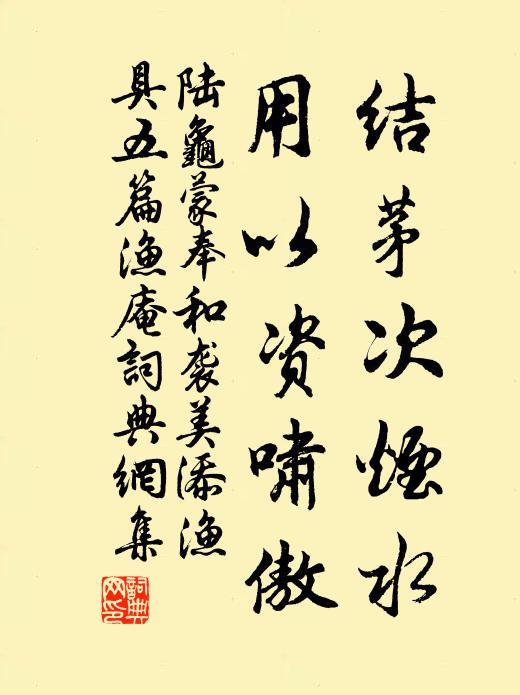 结茅次煙水
用以资啸傲
陆龜蒙奉和袭美添渔
具五篇渔庵詞典網集
詞典
网印